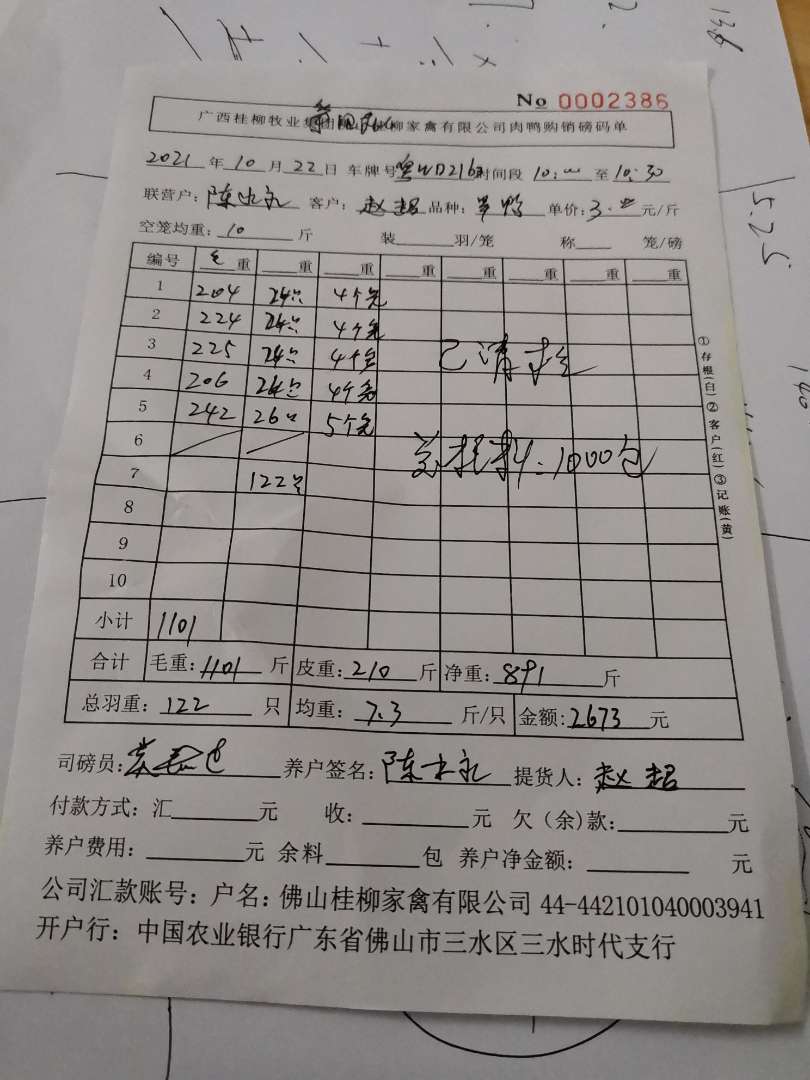 No 0002386
广西桂柳牧业集团佛山桂柳家禽有限公司肉鸭购销磅码单
2021 年 10 月 22 日 车牌号 时间段 10: 至 10:30
联营户：陈水礼 客户：赵超 品种： 鸭 单价：3. 元/斤
空笼均重：10 斤 装 羽/笼 称 笼/磅
编号 毛重 重 重 重 重 重 重 重
1 204 24只 4个笼
2 224 24只 4个笼
3 225 24只 4个笼
已清栏
4 206 24只 4个笼
5 242 26只 5个笼
6 总耗料：1000包
7 122只
8
9
10
小计 1101
合计 毛重：1101 斤 皮重：210 斤 净重：891 斤
总羽重：122 只 均重：7.3 斤/只 金额：2673 元
司磅员： 养户签名：陈水礼 提货人：赵超
付款方式：汇 元 收： 元 欠（余）款： 元
养户费用： 元 余料 包 养户净金额： 元
公司汇款账号：户名：佛山桂柳家禽有限公司 44-442101040003941
开户行：中国农业银行广东省佛山市三水区三水时代支行
①存根（白）②客户（红）③记账（黄）
5.25